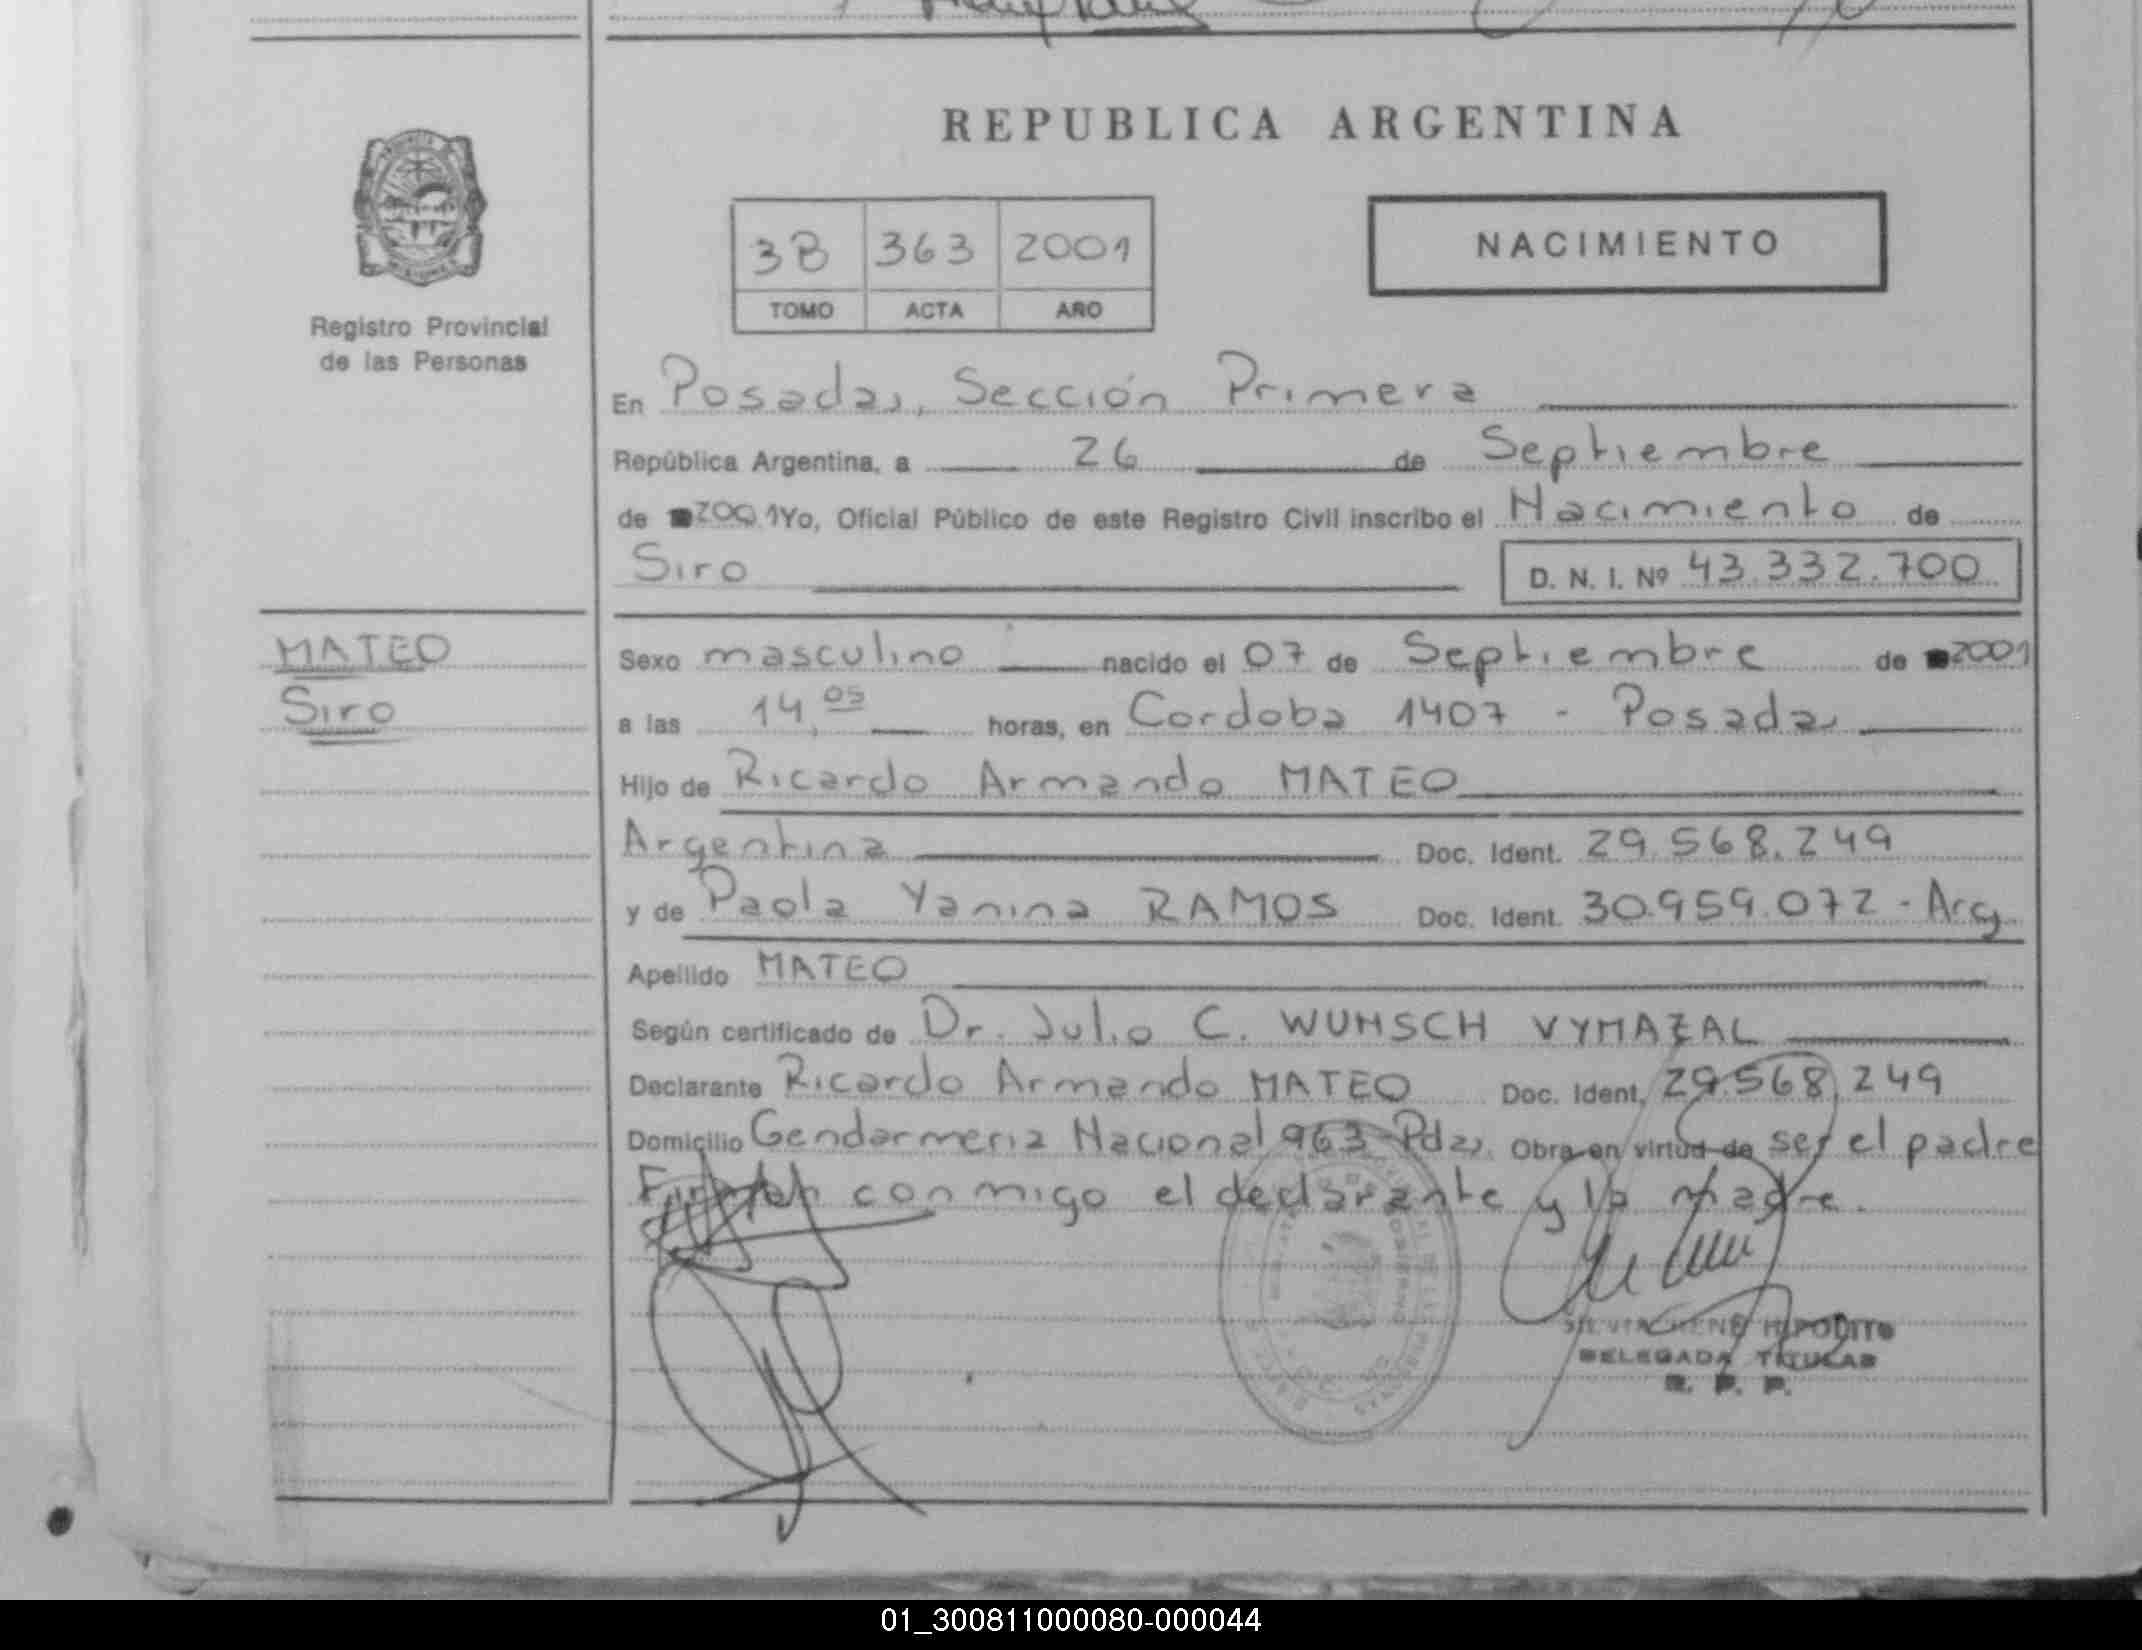 REPUBLICA ARGENTINA
3B 363 2001
TOMO ACTA AÑO
NACIMIENTO
Registro Provincial
de las Personas
En Posadas, Sección Primera
República Argentina, a 26 de Septiembre
de 2001 Yo, Oficial Público de este Registro Civil inscribo el Nacimiento de
Siro D. N. I. Nº 43.332.700
MATEO
Siro
Sexo masculino nacido el 07 de Septiembre de 2001
a las 14,05 horas, en Cordoba 1407 - Posadas
Hijo de Ricardo Armando MATEO
Argentina Doc. Ident. 29.568.249
y de Paola Yanina RAMOS Doc. Ident. 30.959.072 - Arg
Apellido MATEO
Según certificado de Dr. Julio C. WUNSCH VYMAZAL
Declarante Ricardo Armando MATEO Doc. Ident. 29.568.249
Domicilio Gendarmeria Nacional 963 Pdas. Obra en virtud de ser el padre
Firman conmigo el declarante y la madre.
SILVIA IRENE HIPOLITO
DELEGADA TITULAR
R. P. P.
01_300811000080-000044